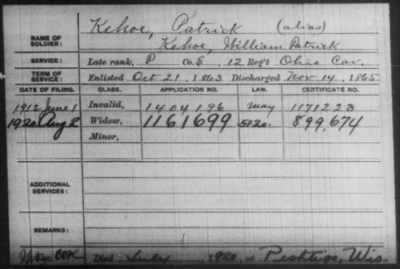 NAME OF SOLDIER: Kehoe, Patrick (alias)
Kehoe, William Patrick
SERVICE: Late rank, P Co. E, 12 Reg't Ohio Cav.
TERM OF SERVICE: Enlisted Oct 21, 1863 Discharged Nov 14, 1865
DATE OF FILING. CLASS. APPLICATION NO. LAW. CERTIFICATE NO.
1912 June 1 Invalid, 1404196 May 1171223
1920 Aug 2 Widow, 1161699 899,674
Minor,
ADDITIONAL SERVICES:
REMARKS:
Died 1920, at Peshtigo, Wis.